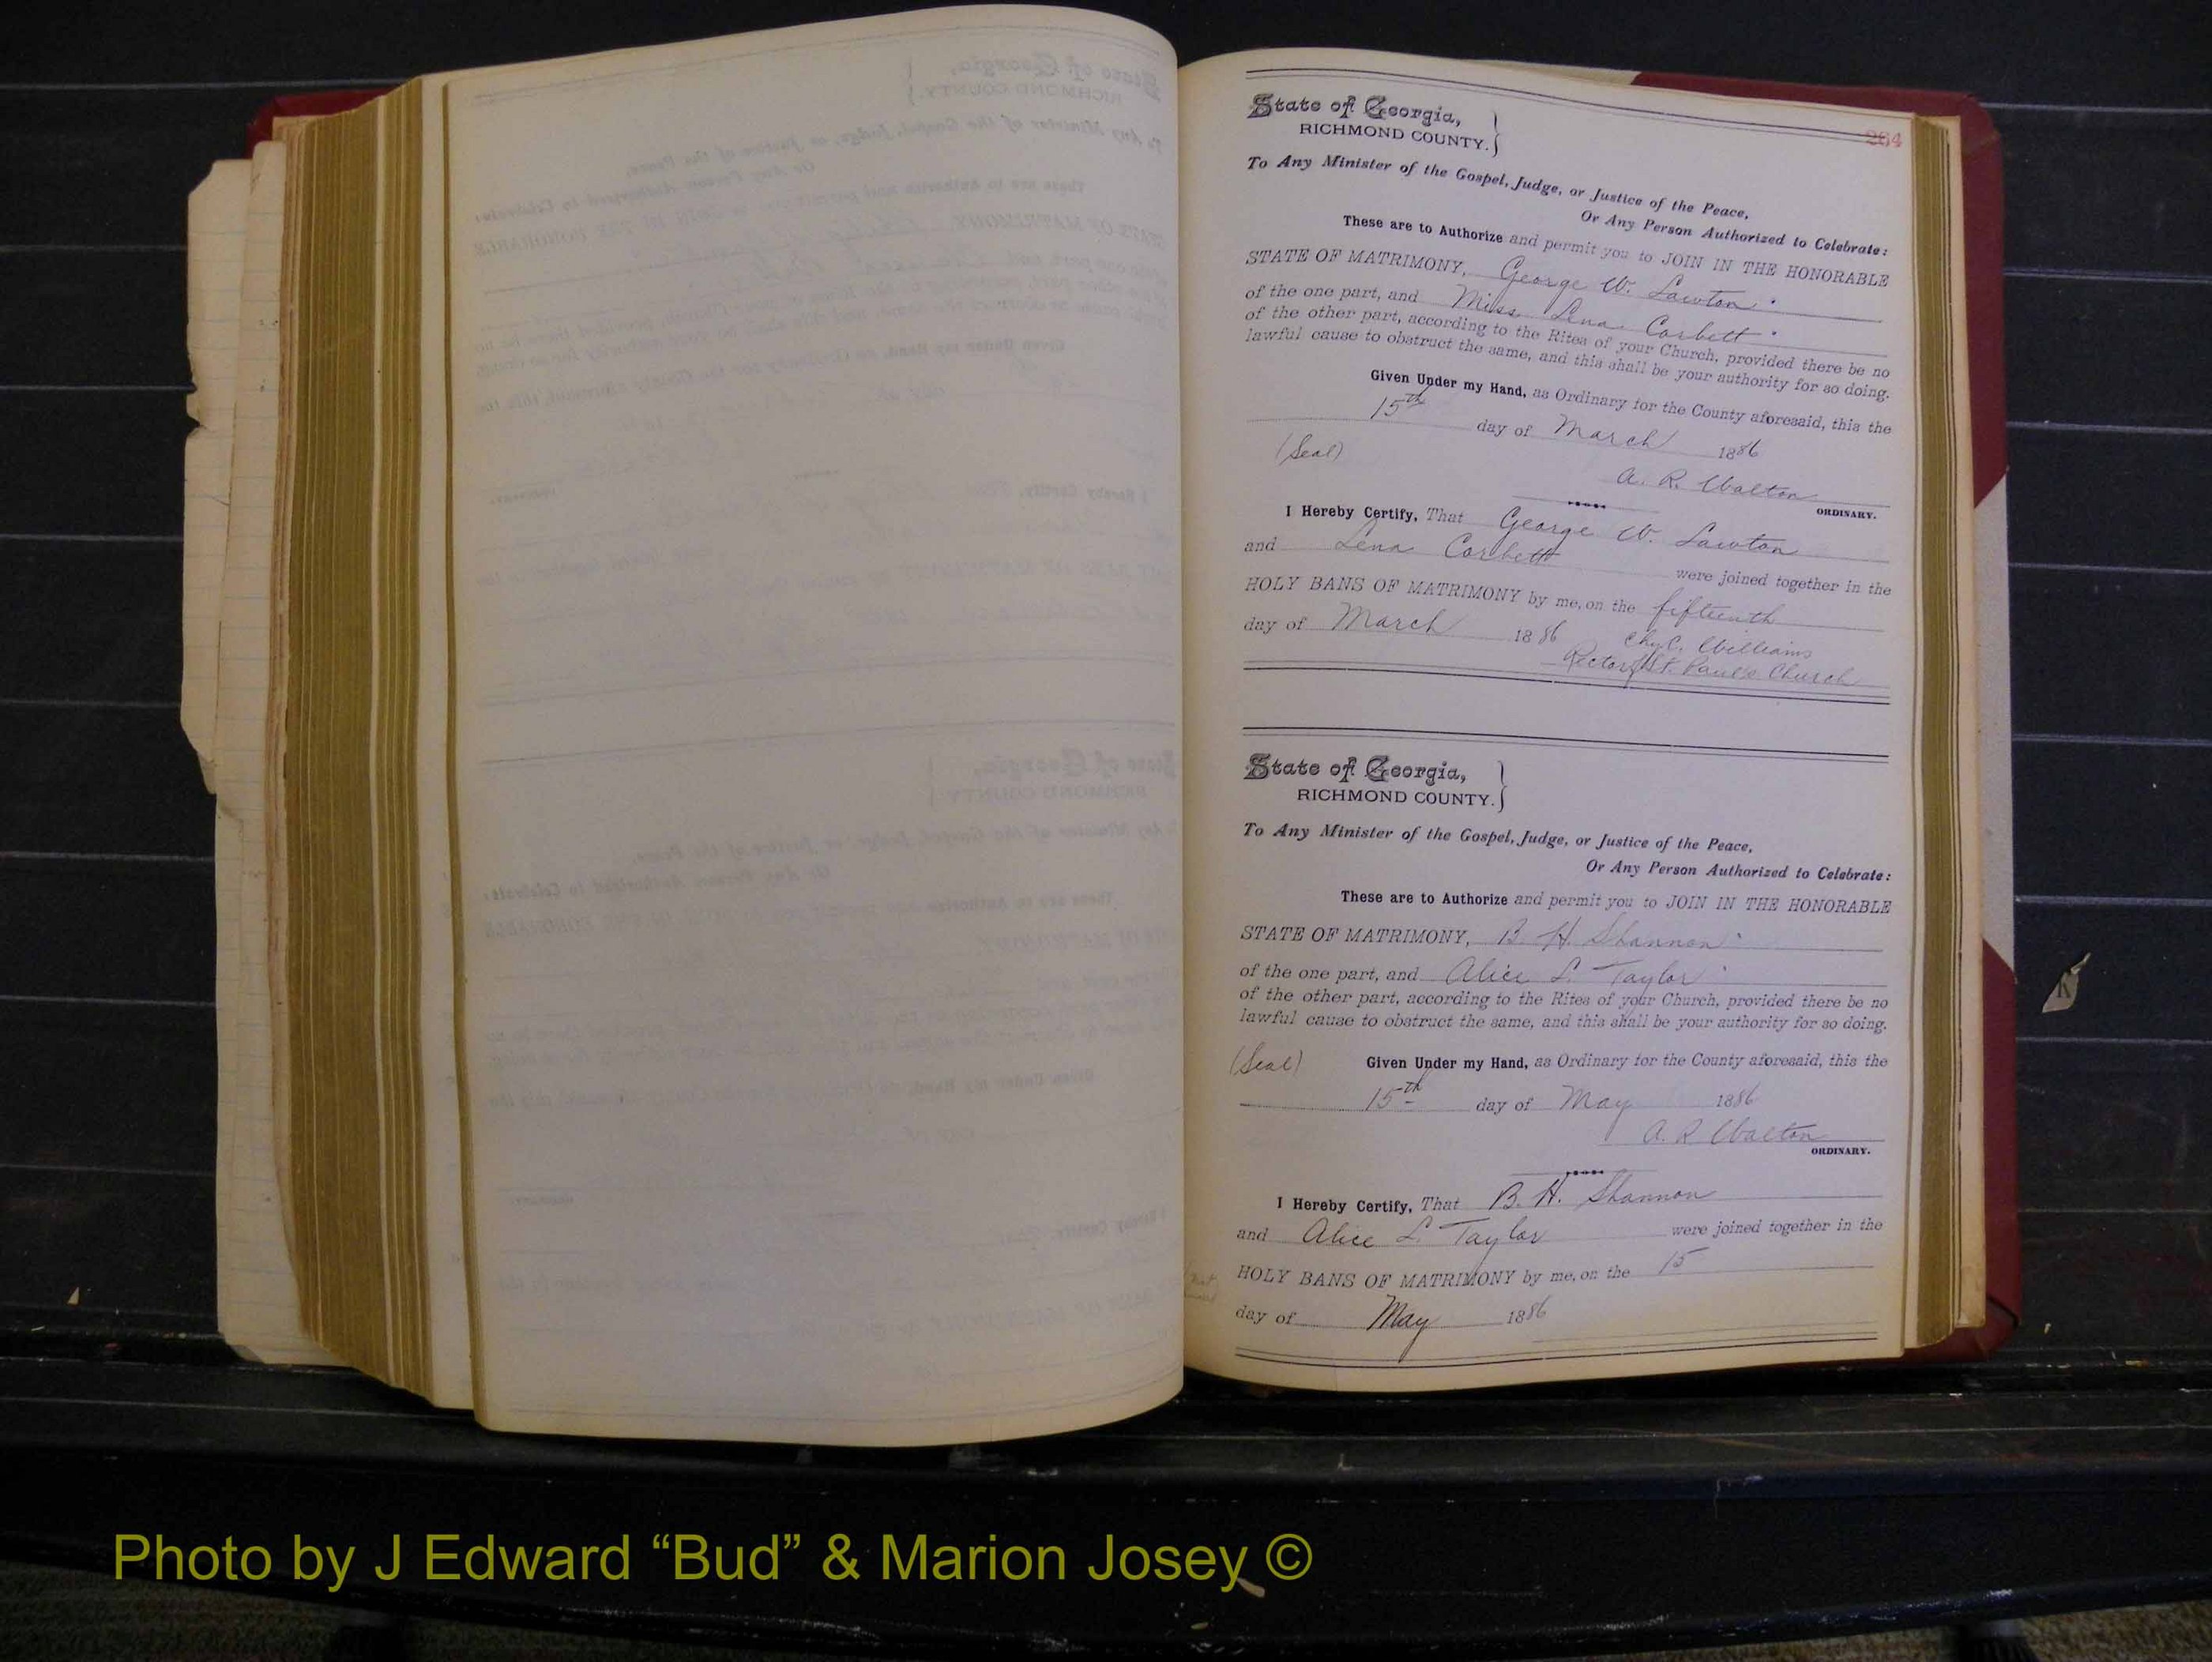 264
State of Georgia,
RICHMOND COUNTY.
To Any Minister of the Gospel, Judge, or Justice of the Peace,
Or Any Person Authorized to Celebrate:
These are to Authorize and permit you to JOIN IN THE HONORABLE
STATE OF MATRIMONY, George W. Lawton
of the one part, and Miss Lena Corbett
of the other part, according to the Rites of your Church, provided there be no
lawful cause to obstruct the same, and this shall be your authority for so doing.
Given Under my Hand, as Ordinary for the County aforesaid, this the
15th day of March 1886
(Seal)
A. R. Walton
ORDINARY.
I Hereby Certify, That George W. Lawton
and Lena Corbett were joined together in the
HOLY BANS OF MATRIMONY by me, on the fifteenth
day of March 1886
C. Williams
Rector of St. Paul's Church
State of Georgia,
RICHMOND COUNTY.
To Any Minister of the Gospel, Judge, or Justice of the Peace,
Or Any Person Authorized to Celebrate:
These are to Authorize and permit you to JOIN IN THE HONORABLE
STATE OF MATRIMONY, B. H. Shannon
of the one part, and Alice L. Taylor
of the other part, according to the Rites of your Church, provided there be no
lawful cause to obstruct the same, and this shall be your authority for so doing.
(Seal) Given Under my Hand, as Ordinary for the County aforesaid, this the
15th day of May 1886
A. R Walton
ORDINARY.
I Hereby Certify, That B. H. Shannon
and Alice L. Taylor were joined together in the
HOLY BANS OF MATRIMONY by me, on the 15
day of May 1886
K
Photo by J Edward “Bud” & Marion Josey ©